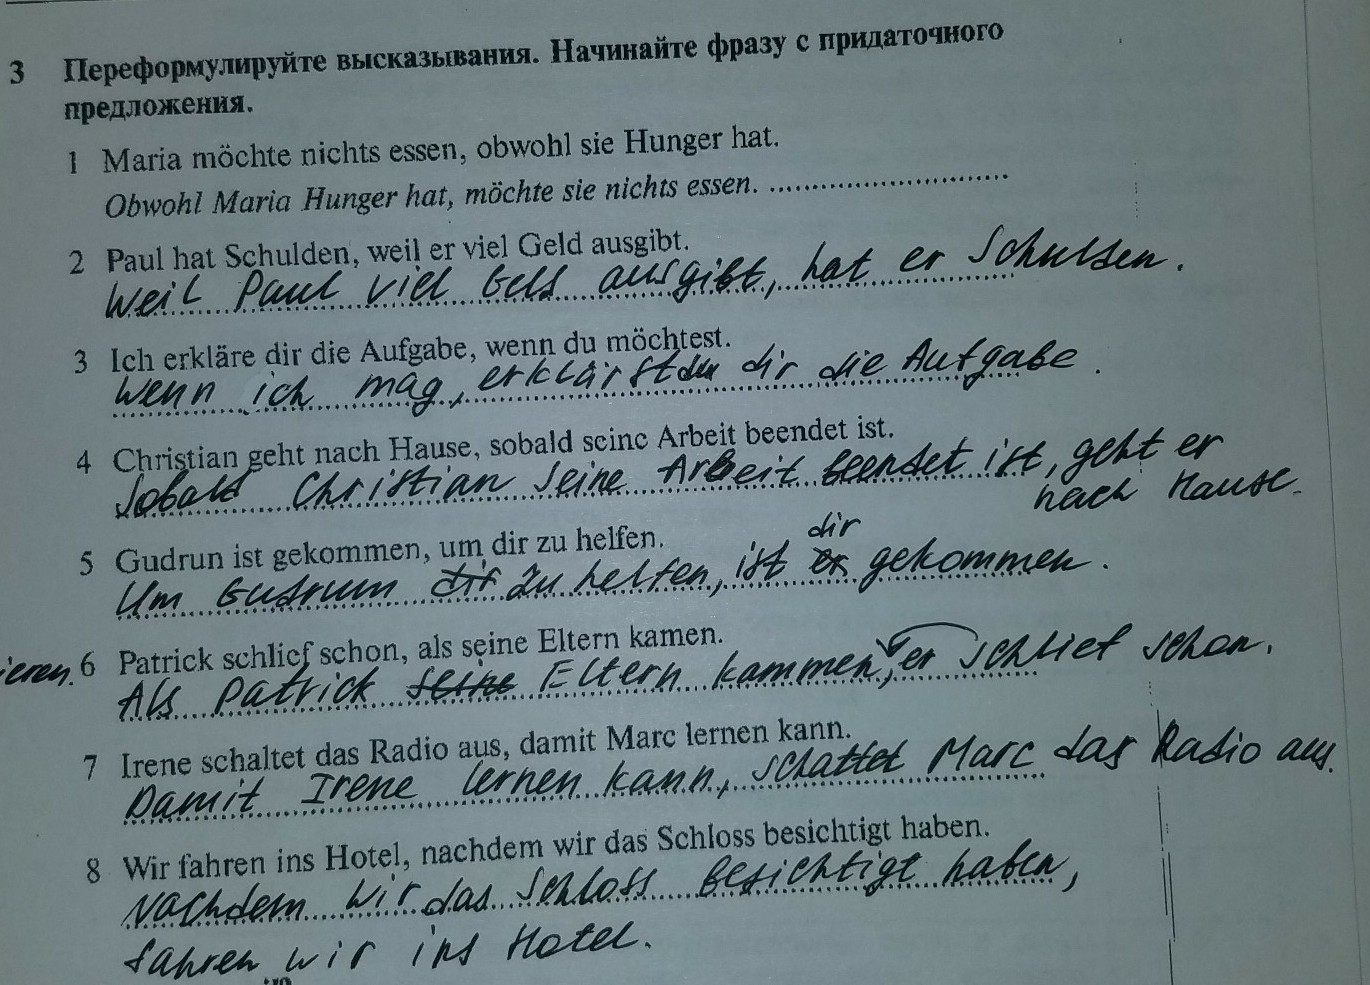 3 Переформулируйте высказывания. Начинайте фразу с придаточного
предложения.
1 Maria möchte nichts essen, obwohl sie Hunger hat.
Obwohl Maria Hunger hat, möchte sie nichts essen. ..............................
2 Paul hat Schulden, weil er viel Geld ausgibt.
Weil Paul viel Geld ausgibt, hat er Schulden.
3 Ich erkläre dir die Aufgabe, wenn du möchtest.
Wenn ich mag, erklärst du dir die Aufgabe.
4 Christian geht nach Hause, sobald seine Arbeit beendet ist.
Sobald Christian seine Arbeit beendet ist, geht er
nach Hause.
5 Gudrun ist gekommen, um dir zu helfen.
dir
Um Gudrum dir zu helfen, ist er gekommen.
ieren. 6 Patrick schlief schon, als seine Eltern kamen.
Als Patrick seine Eltern kammen, er schlief schon.
7 Irene schaltet das Radio aus, damit Marc lernen kann.
Damit Irene lernen kann, schaltet Marc das Radio aus.
8 Wir fahren ins Hotel, nachdem wir das Schloss besichtigt haben.
Nachdem wir das Schloss besichtigt haben,
fahren wir ins Hotel.